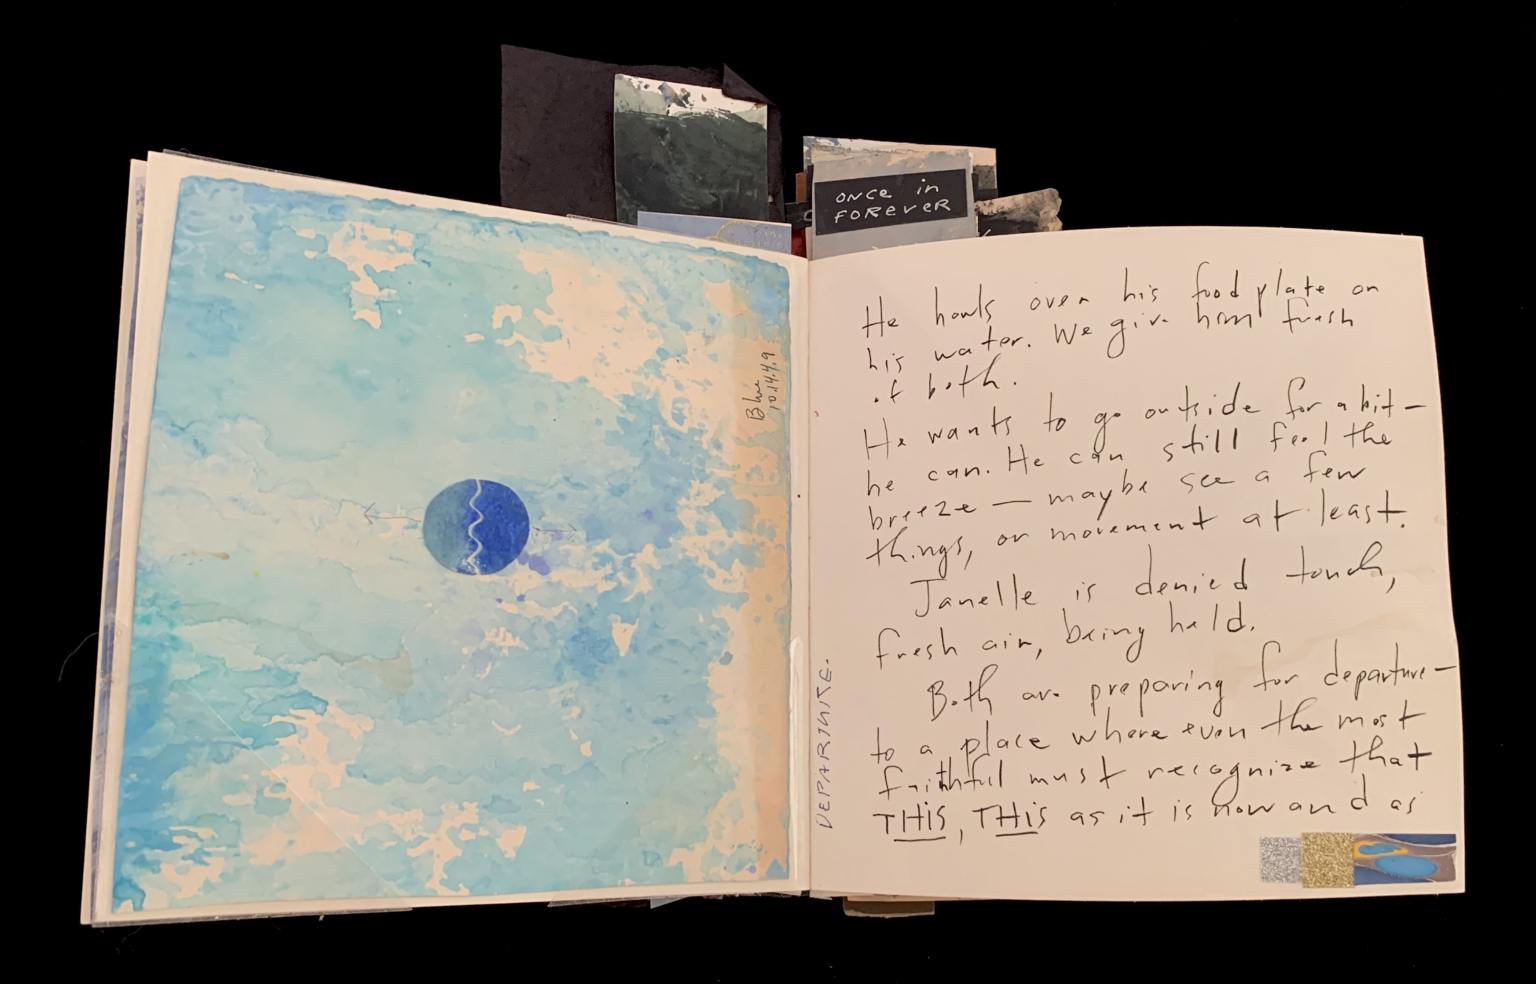 ONCE in
FOREVER
Blue
10.14.19
He howls over his food plate on
his water. We give him fresh
of both.
He wants to go outside for a bit —
he can. He can still feel the
breeze — maybe see a few
things, or movement at least.
Janelle is denied touch,
fresh air, being held.
Both are preparing for departure —
to a place where even the most
faithful must recognize that
THIS, THIS as it is now and as
DEPARTURE.